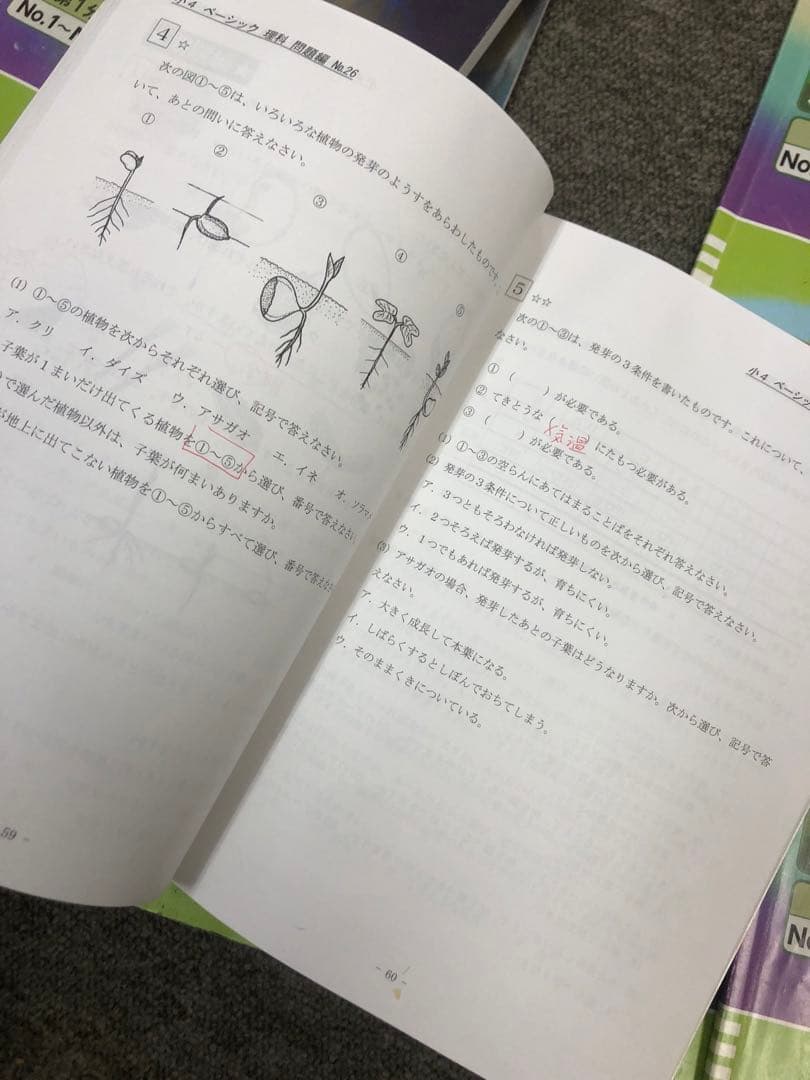 第1分
No.1~
小4 ベーシック 理科 問題編 №26
4 ☆
次の図①~⑤は、いろいろな植物の発芽のようすをあらわしたものです。
いて、あとの問いに答えなさい。
①
②
③
④
⑤
(1) ①~⑤の植物を次からそれぞれ選び、記号で答えなさい。
ア．クリ イ．ダイズ ウ．アサガオ エ．イネ オ．ソラマ
子葉が1まいだけ出てくる植物を①~⑤から選び、番号で答えなさい
で選んだ植物以外は、子葉が何まいありますか。
が地上に出てこない植物を①~⑤からすべて選び、番号で答えなさ
59 -
小4 ベーシック
5 ☆☆
次の①~③は、発芽の3条件を書いたものです。これについて、
なさい。
① ( )が必要である。
② てきとうな( 気温 にたもつ必要がある。
③ ( )が必要である。
(1) ①~③の空らんにあてはまることばをそれぞれ答えなさい。
(2) 発芽の3条件について正しいものを次から選び、記号で答えなさい。
ア．3つともそろわなければ発芽しない。
イ．2つそろえば発芽するが、育ちにくい。
ウ．1つでもあれば発芽するが、育ちにくい。
(3) アサガオの場合、発芽したあとの子葉はどうなりますか。次から選び、記号で答
えなさい。
ア．大きく成長して本葉になる。
イ．しばらくするとしぼんでおちてしまう。
ウ．そのままくきについている。
- 60 -
No
No